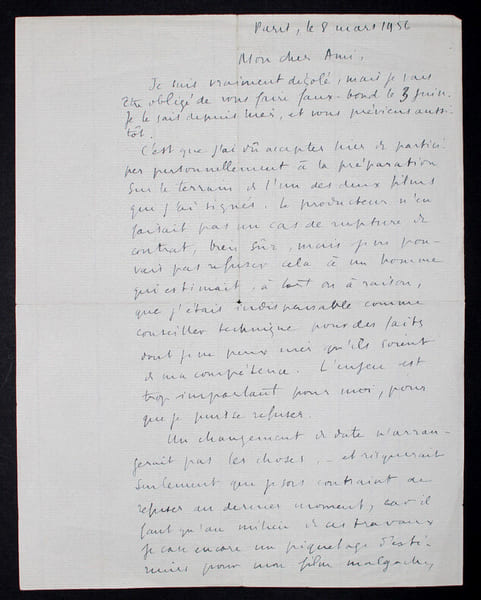 Paris, le 8 mars 1956
Mon cher Ami,
Je suis vraiment désolé, mais je vais
être obligé de vous faire faux-bond le 3 juin.
Je le sais depuis hier, et vous préviens aussi-
tôt.
C'est que j'ai dû accepter hier de partici-
per personnellement à la préparation
sur le terrain de l'un des deux films
que j'ai signés. Le producteur n'en
faisait pas un cas de rupture de
contrat, bien sûr, mais je ne pou-
vais pas refuser cela à un homme
qui estimait, à tort ou à raison,
que j'étais indispensable comme
conseiller technique pour des faits
dont je ne peux nier qu'ils soient
de ma compétence. L'enjeu est
trop important pour moi, pour
que je puisse refuser.
Un changement de date n'arran-
gerait pas les choses, – et risquerait
seulement que je sois contraint de
refuser au dernier moment, car il
faut qu'au milieu de ces travaux
je case encore un piquetage
pour mon film malgache,